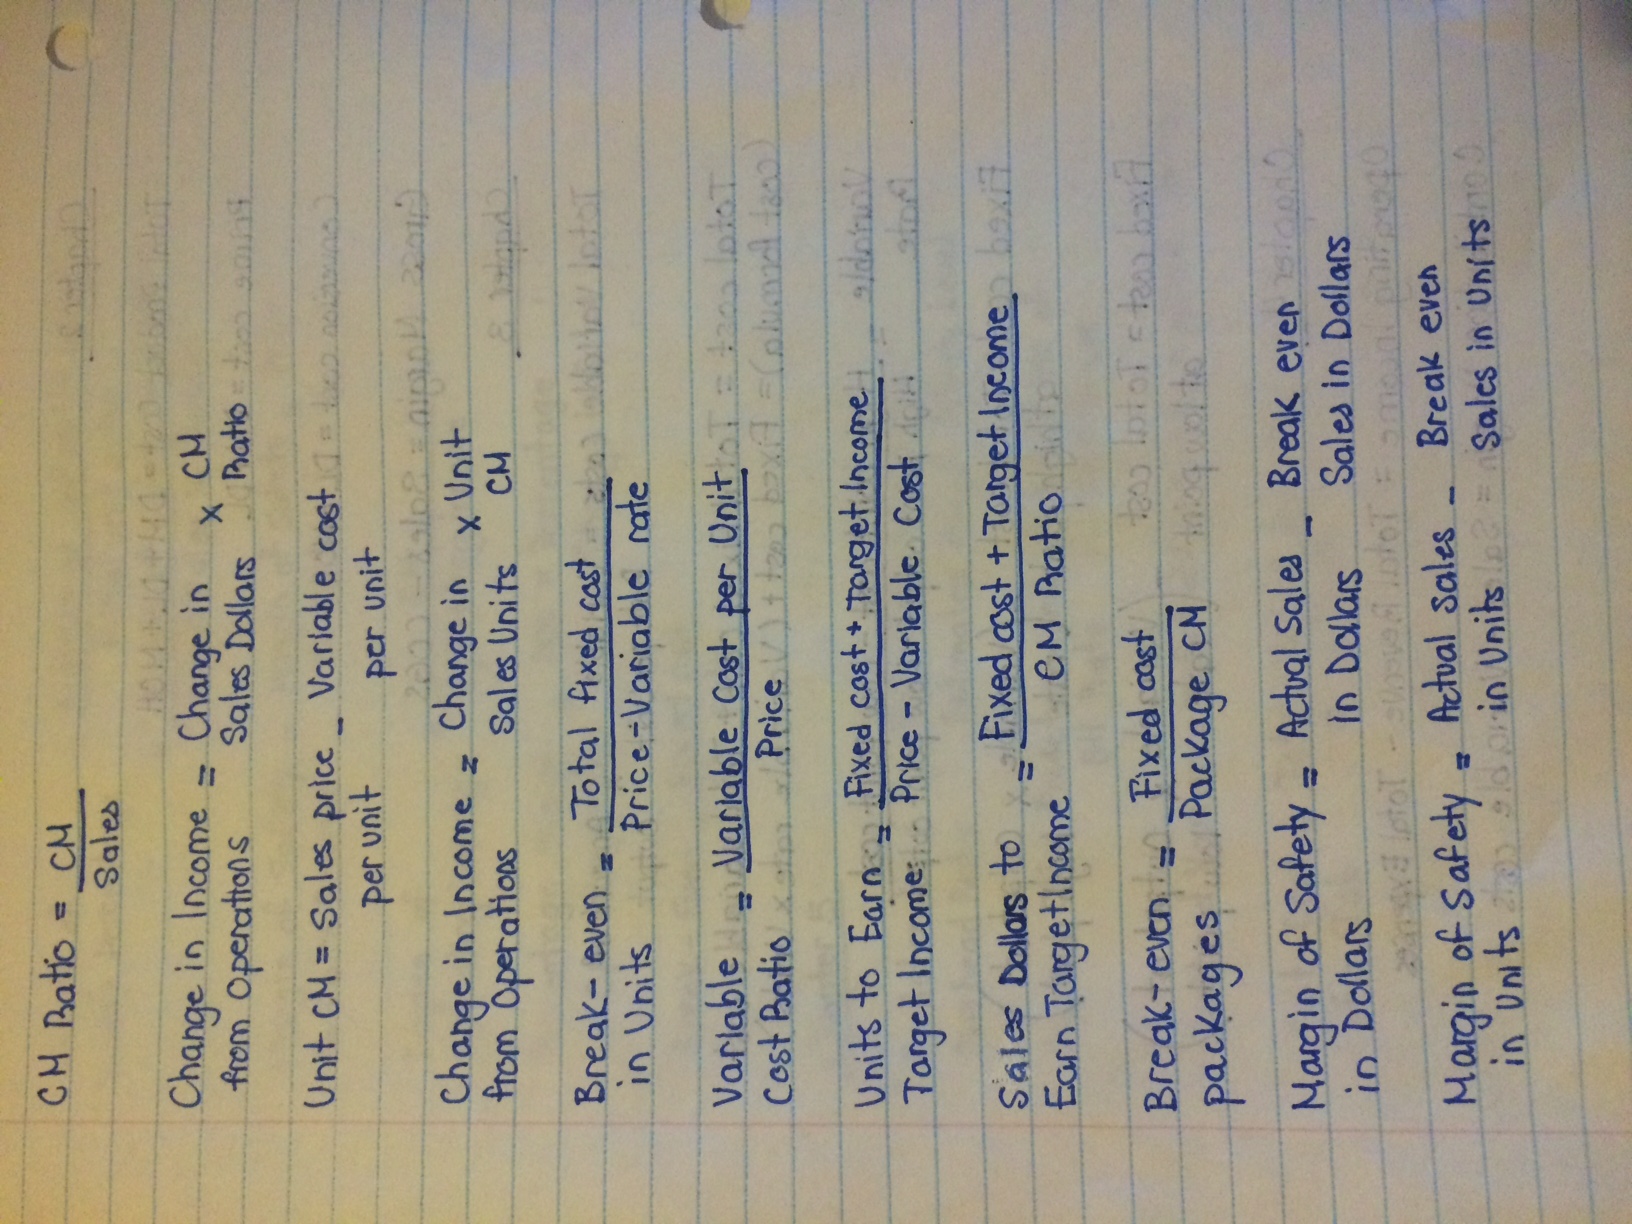 CM Ratio = CM
Sales
Change in Income = Change in x CM
from Operations Sales Dollars Ratio
Unit CM = Sales price - Variable cost
per unit per unit
Change in Income = Change in x Unit
from Operations Sales Units CM
Break-even = Total fixed cost
in Units Price - Variable rate
Variable = Variable Cost per Unit
Cost Ratio Price
Units to Earn = Fixed cost + Target Income
Target Income Price - Variable Cost
Sales Dollars to = Fixed cost + Target Income
Earn Target Income CM Ratio
Break-even = Fixed cost
packages Package CM
Margin of Safety = Actual Sales - Break even
in Dollars in Dollars Sales in Dollars
Margin of Safety = Actual sales - Break even
in Units in Units Sales in Units